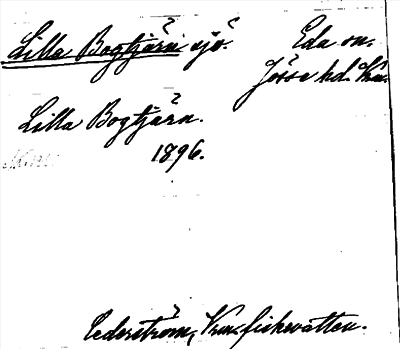 Lilla Bogtjärn sjö. Eda sn.
Jösse hd. Vrm.
Lilla Bogtjärn.
1896.
Cederström, Vrm. fiskevatten.